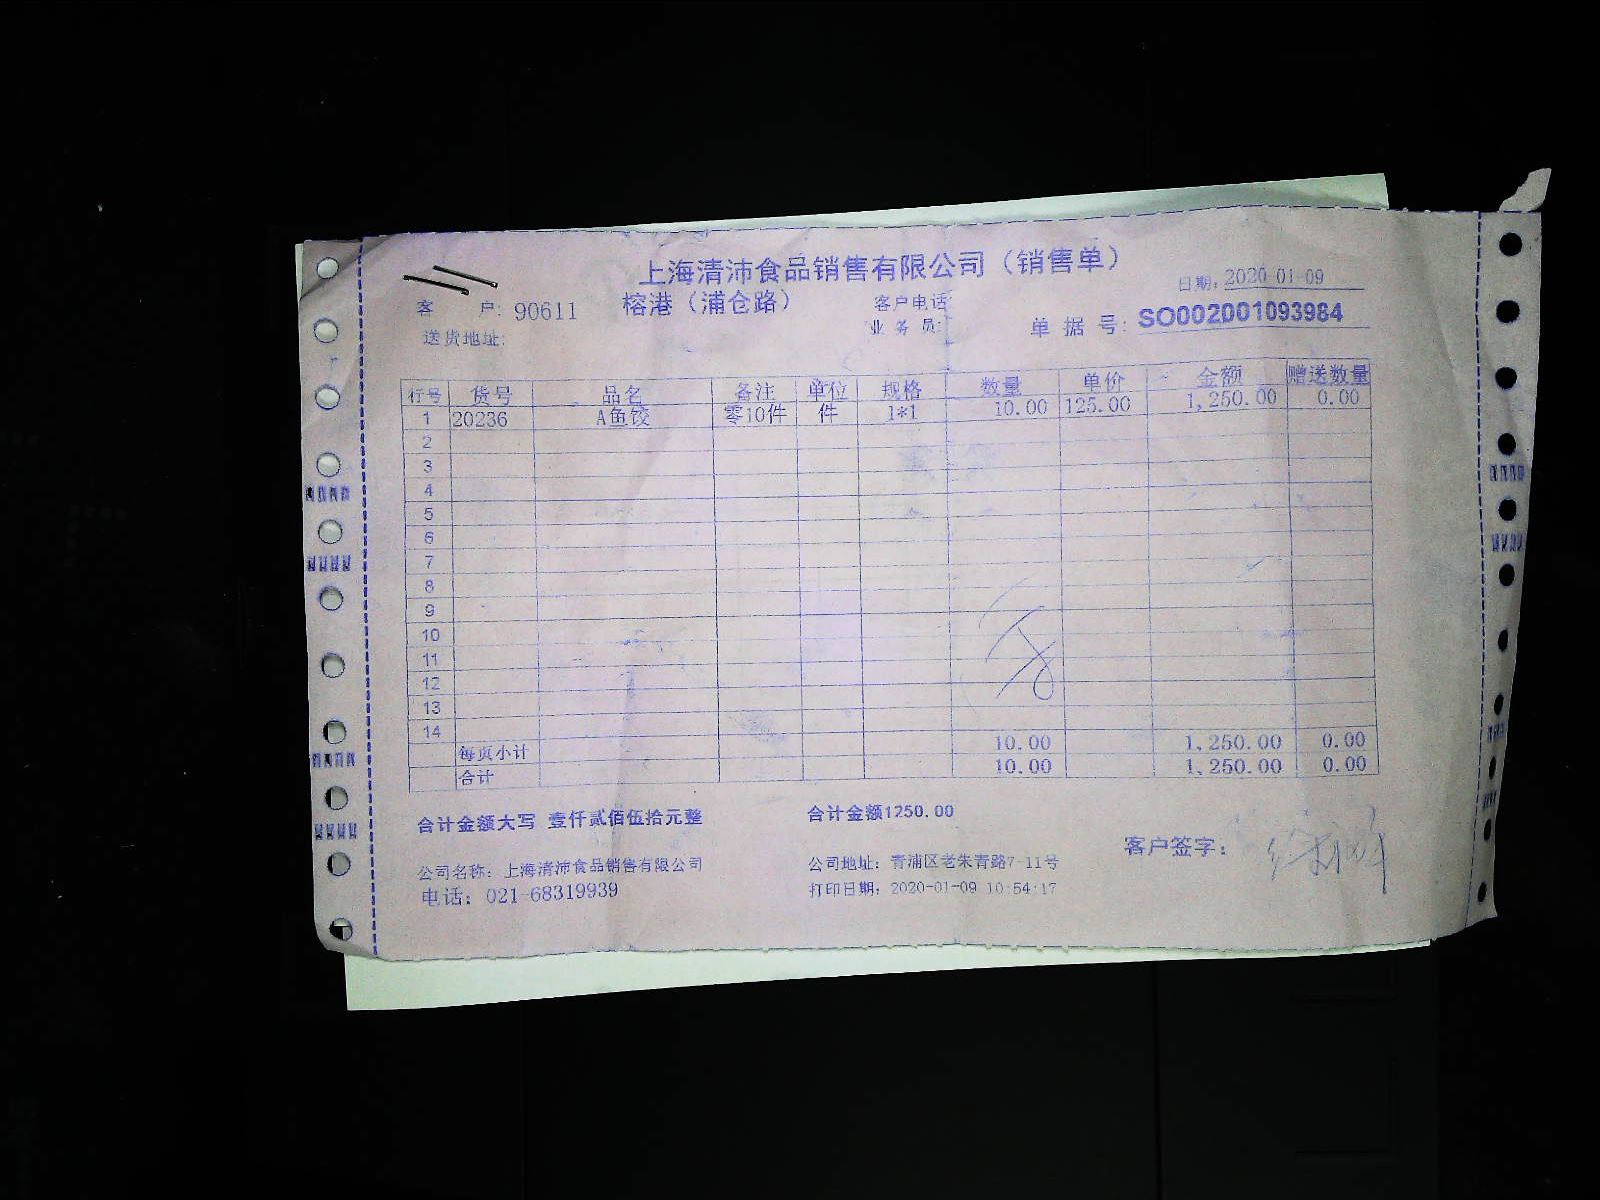 上海清沛食品销售有限公司（销售单）
日期: 2020-01-09
客 户: 90611 榕港（浦仓路） 客户电话:
送货地址: 业务员: 单据号: SO002001093984
行号 货号 品名 备注 单位 规格 数量 单价 金额 赠送数量
1 20236 A鱼饺 零10件 件 1*1 10.00 125.00 1,250.00 0.00
2
3
4
5
6
7
8
9
10
11
12
13
14
每页小计 10.00 1,250.00 0.00
合计 10.00 1,250.00 0.00
合计金额大写 壹仟贰佰伍拾元整 合计金额1250.00
客户签字:
公司名称: 上海清沛食品销售有限公司 公司地址: 青浦区老朱青路7-11号
电话: 021-68319939 打印日期: 2020-01-09 10:54:17